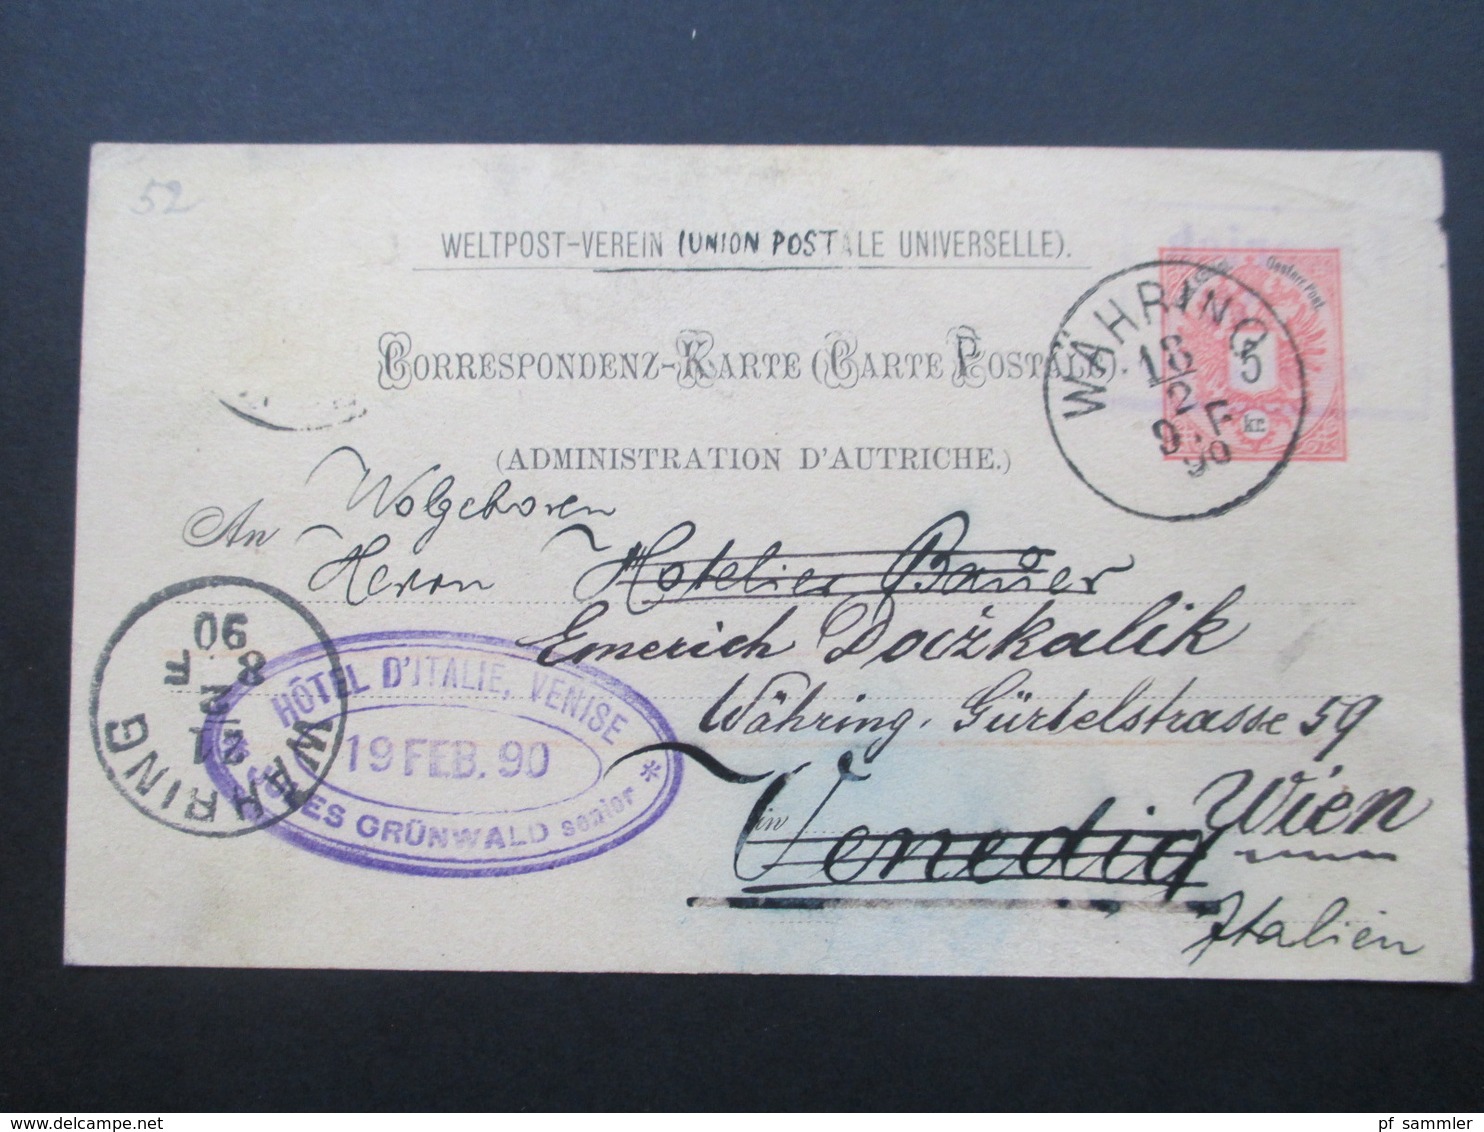 52
WELTPOST-VEREIN (UNION POSTALE UNIVERSELLE).
CORRESPONDENZ-KARTE (CARTE POSTALE).
(ADMINISTRATION D'AUTRICHE.)
Oesterr. Post.
5
kr.
WÄHRING
18
2
9.F
90
Wolgeboren
An
Herrn Hotelier Bauer
Emerich
Währing. Gürtelstrasse 59
in Venedig Wien
Italien
HÔTEL D'ITALIE, VENISE
19 FEB. 90
JULES GRÜNWALD senior *
WÄHRING
21
2
8.F
90
pf_sammler
delcampe.net